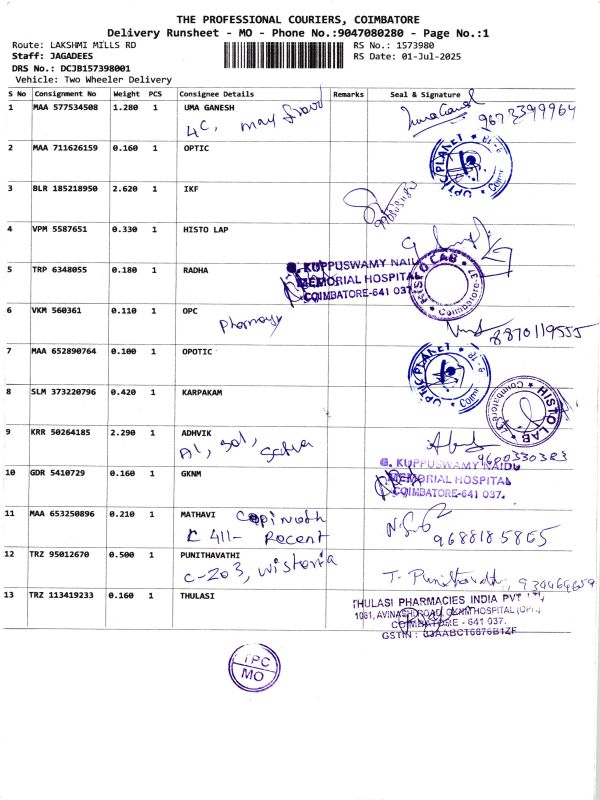 THE PROFESSIONAL COURIERS, COIMBATORE
Delivery Runsheet - MO - Phone No.:9047080280 - Page No.:1
Route: LAKSHMI MILLS RD
RS No.: 1573980
Staff: JAGADEES
RS Date: 01-Jul-2025
DRS No.: DCJB157398001
Vehicle: Two Wheeler Delivery
S No Consignment No Weight PCS Consignee Details Remarks Seal & Signature
1 MAA 577534508 1.280 1 UMA GANESH
4C,
2 MAA 711626159 0.160 1 OPTIC
OPTIC PLANET
3 BLR 185218950 2.620 1 IKF
4 VPM 5587651 0.330 1 HISTO LAP
HISTO LAB
Coimbatore-37
5 TRP 6348055 0.180 1 RADHA
G. KUPPUSWAMY NAIDU
MEMORIAL HOSPITAL
COIMBATORE-641 037.
6 VKM 560361 0.110 1 OPC
Pharmacy
8870119555
7 MAA 652890764 0.100 1 OPOTIC
OPTIC PLANET
8 SLM 373220796 0.420 1 KARPAKAM
HISTO LAB
Coimbatore
9 KRR 50264185 2.290 1 ADHVIK
A1, Sol,
9600330383
10 GDR 5410729 0.160 1 GKNM
G. KUPPUSWAMY NAIDU
MEMORIAL HOSPITAL
COIMBATORE-641 037.
11 MAA 653250896 0.210 1 MATHAVI
C 411- Recent
9688185865
12 TRZ 95012670 0.500 1 PUNITHAVATHI
C-203, Wistoria
13 TRZ 113419233 0.160 1 THULASI
THULASI PHARMACIES INDIA PVT
1081, AVINASHI ROAD, GKNM HOSPITAL
COIMBATORE - 641 037.
GSTIN : 33AABCT6876B1ZF
TPC
MO